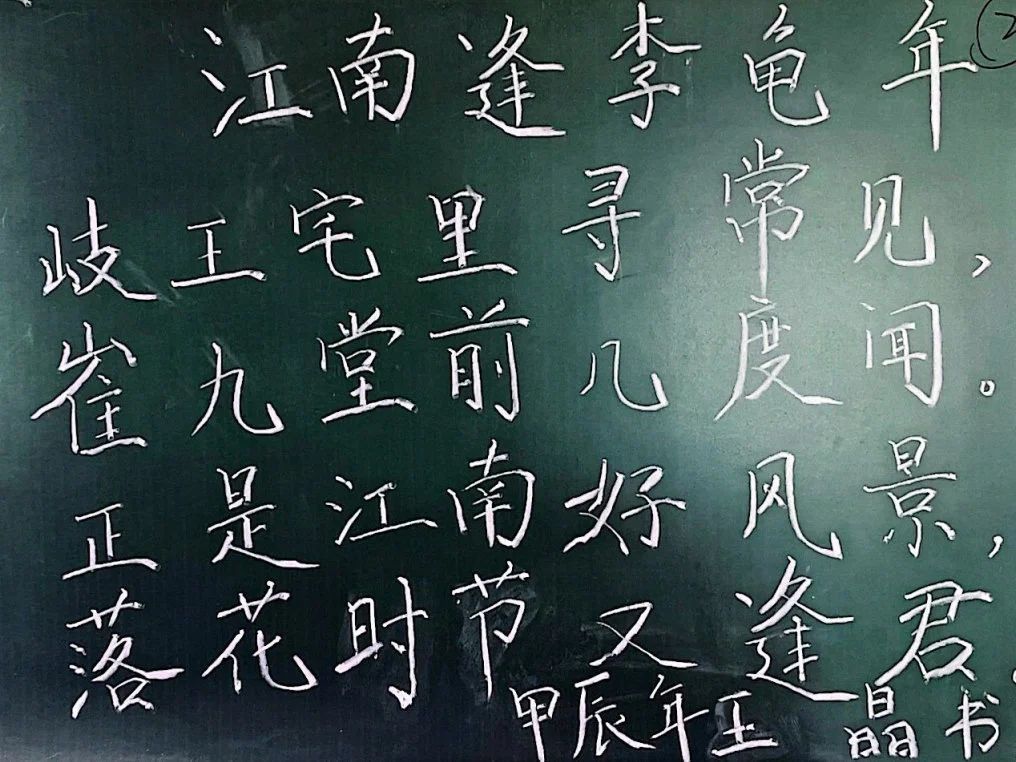 江南逢李龟年
岐王宅里寻常见，
崔九堂前几度闻。
正是江南好风景，
落花时节又逢君。
甲辰年王晶书
2